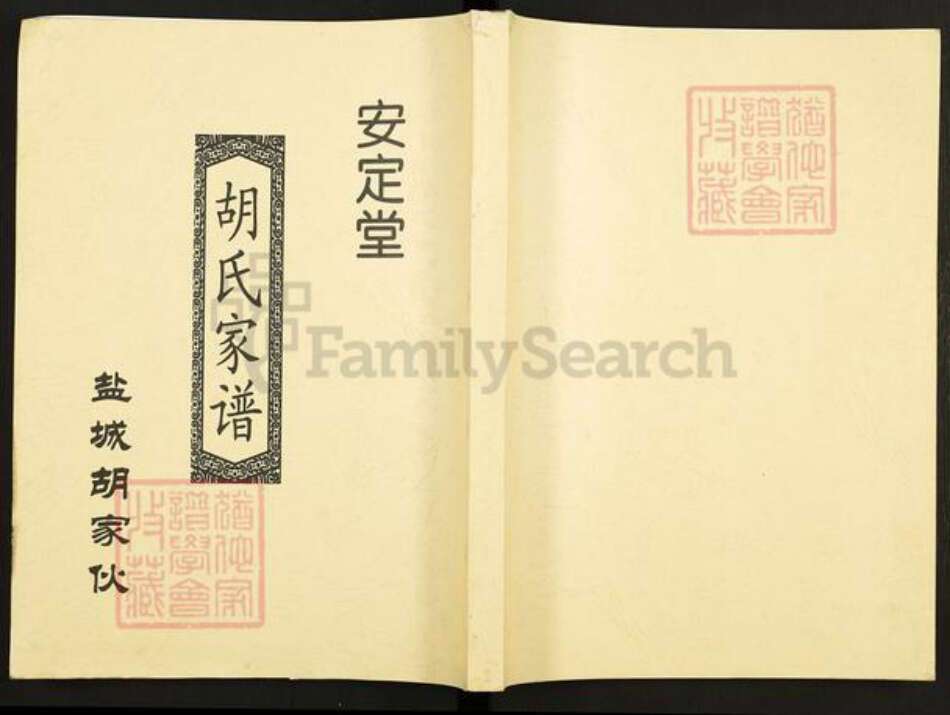 安定堂
胡氏家谱
盐城胡家伙
猶他家
譜學會
收藏
猶他家
譜學會
收藏
FamilySearch